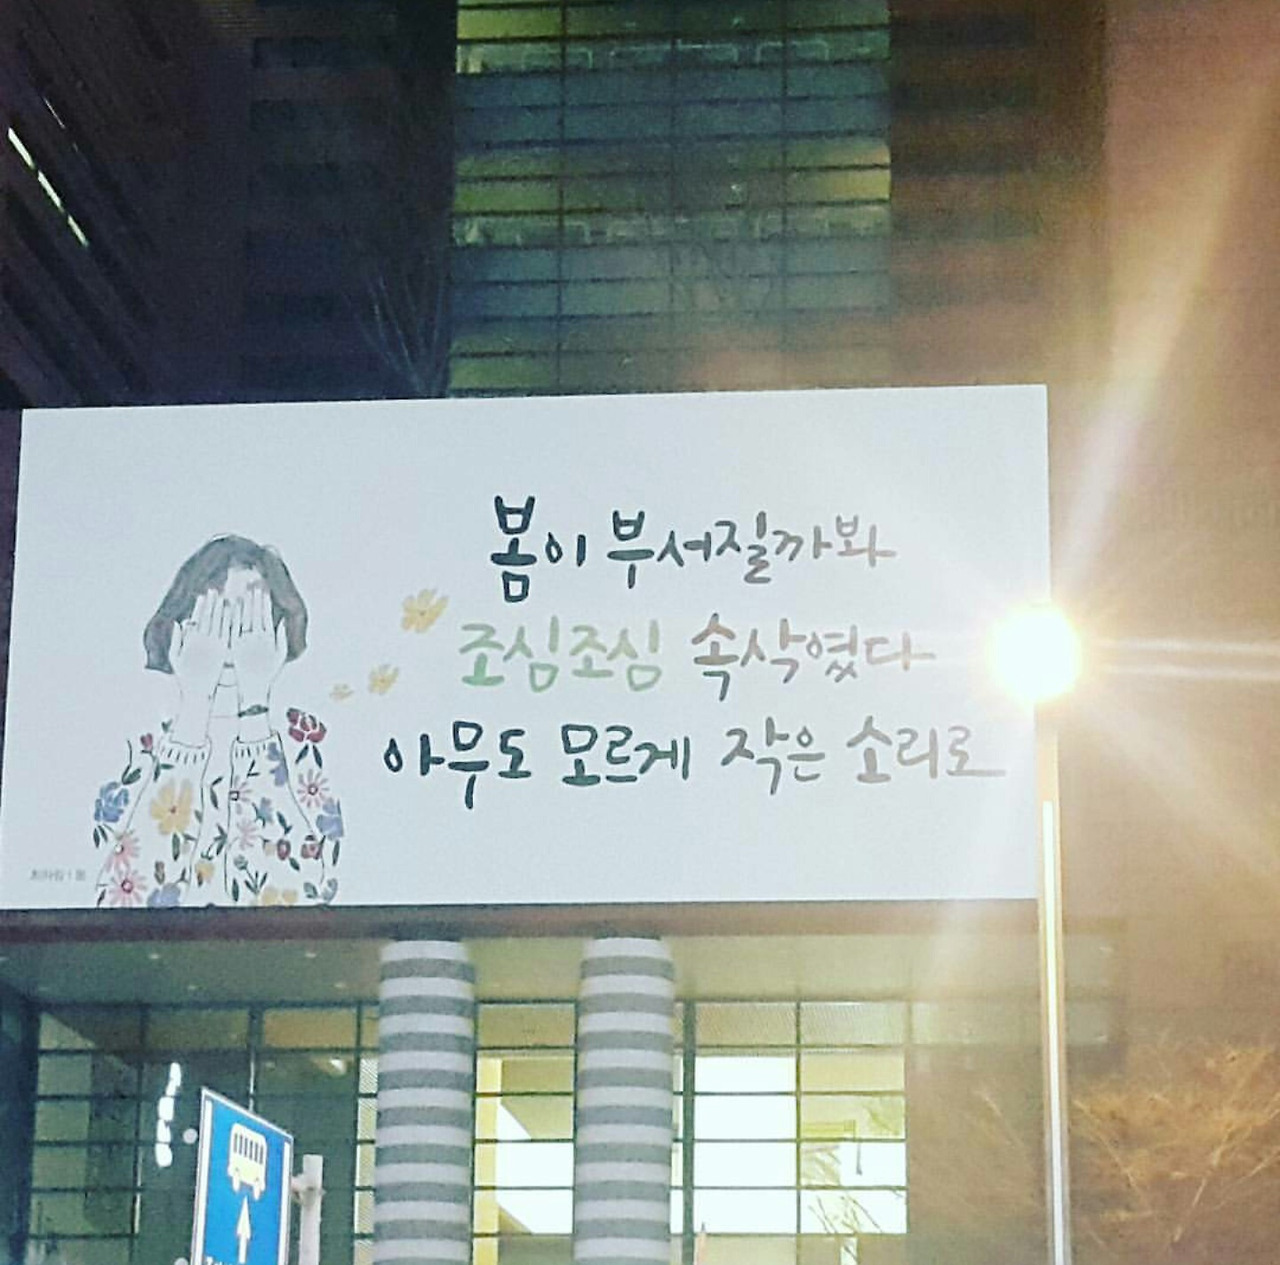 봄이 부서질까봐
조심조심 속삭였다
아무도 모르게 작은 소리로